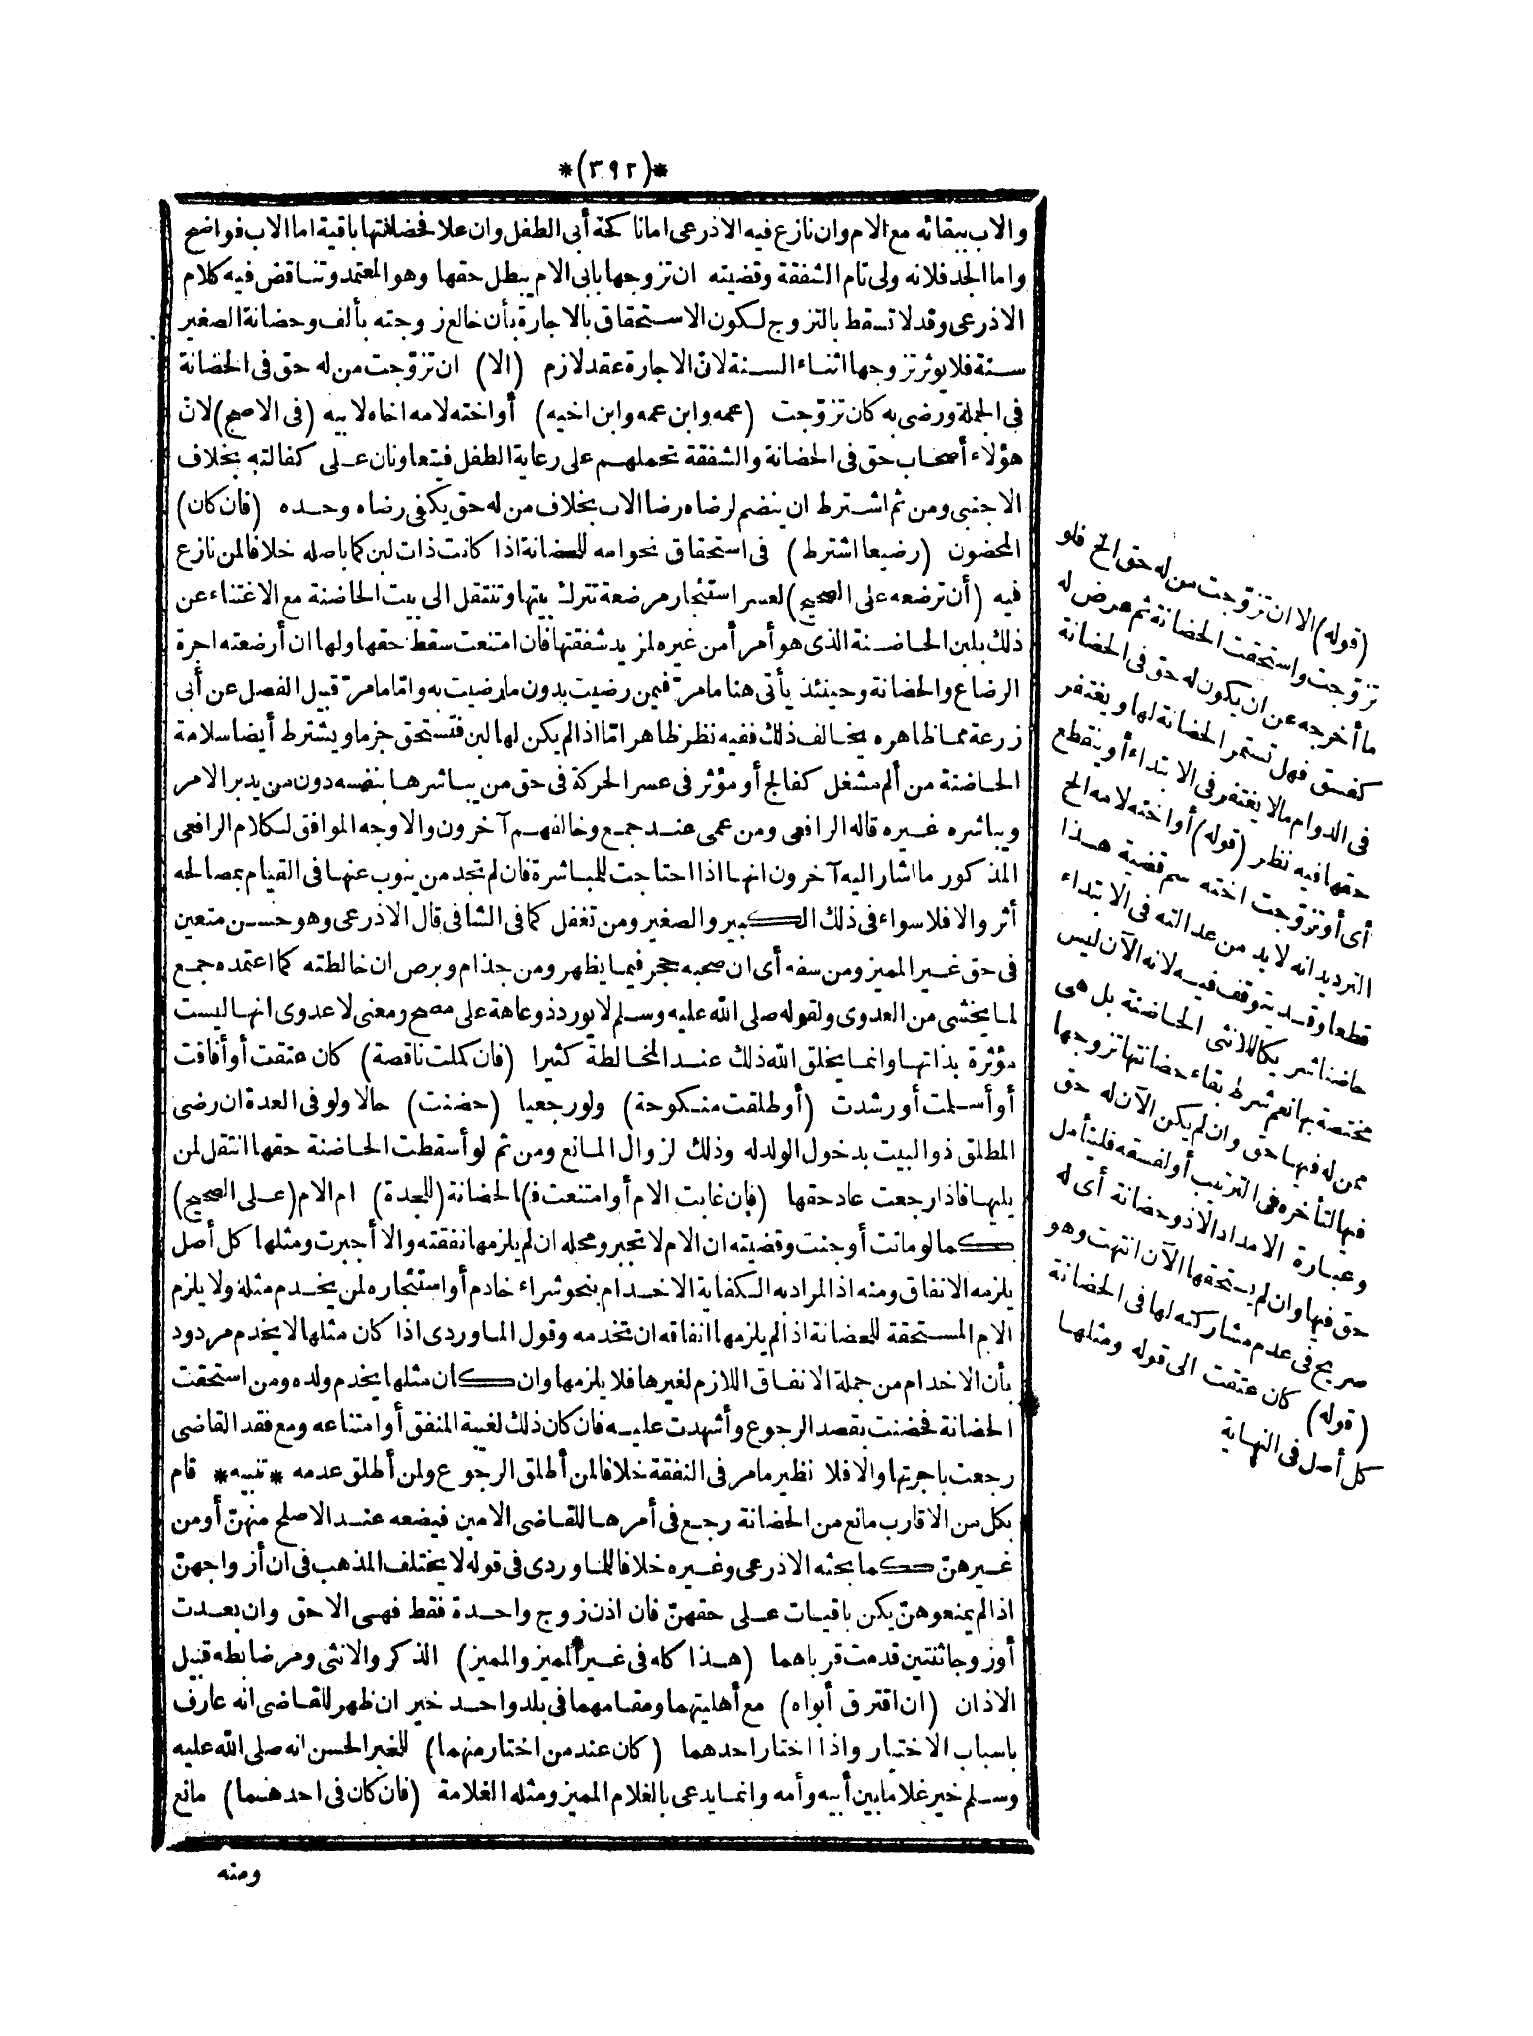 *(٣٩٢)*
والاب ببقائه مع الام وان نازع فيه الاذرعى اما نا كحة أبى الطفل وان علا فحضانتها باقية اما الاب فواضح
واما الجد فلانه ولى تام الشفقة وقضيته ان تزوجها بابى الام يبطل حقها وهو المعتمد وتناقض فيه كلام
الاذرعى وقد لا تسقط بالتزوج لكون الاستحقاق بالاجارة بأن خالع زوجته بألف وحضانة الصغير
سنة فلا يوثر تزوجها اثناء السنة لانّ الاجارة عقد لازم (الا) ان تزوّجت من له حق فى الحضانة
فى الجملة ورضى به كان تزوّجت (عمه وابن عمه وابن اخيه) أو اخته لامه اخاه لابيه (فى الاصح) لانّ
هؤلاء أصحاب حق فى الحضانة والشفقة تحملهم على رعاية الطفل فيتعاونان على كفالته بخلاف
الاجنبى ومن ثم اشترط ان ينضم لرضاه رضا الاب بخلاف من له حق يكفى رضاه وحده (فان كان)
المحضون (رضيعا اشترط) فى استحقاق نحو امه للحضانة اذا كانت ذات لبن كما باصله خلافا لمن نازع
فيه (أن ترضعه على الصحيح) لعسر استئجار مرضعة تترك بيتها وتنتقل الى بيت الحاضنة مع الاغتناء عن
ذلك بلبن الحاضنة الذى هو أمر أمن غيره لمزيد شفقتها فان امتنعت سقط حقها ولها ان أرضعته اجرة
الرضاع والحضانة وحينئذ يأتى هنا ما مرّ فيمن رضيت بدون ما رضيت به وامّا ما مرّ قبيل الفصل عن أبى
زرعة مما ظاهره يخالف ذلك ففيه نظر ظاهر امّا اذا لم يكن لها لبن فتستحق جزما ويشترط أيضا سلامة
الحاضنة من ألم مشغل كفالج أو مؤثر فى عسر الحركة فى حق من يباشرها بنفسه دون من يدبر الامر
ويباشره غيره قاله الرافعى ومن عمى عند جمع وخالفهم آخرون والاوجه الموافق لكلام الرافعى
المذكور ما اشار اليه آخرون انها اذا احتاجت للمباشرة فان لم تجد من ينوب عنها فى القيام بمصالحه
أثر والا فلا سواء فى ذلك الكبير والصغير ومن تغفل كما فى الشافى قال الاذرعى وهو حسن متعين
فى حق غير المميز ومن سفه أى ان صحبه حجر فيما يظهر ومن جذام وبرص ان خالطته كما اعتمده جمع
لما يخشى من العدوى ولقوله صلى الله عليه وسلم لا يورد ذو عاهة على مصح ومعنى لا عدوى انها ليست
مؤثرة بذاتها وانما يخلق الله ذلك عند المخالطة كثيرا (فان كملت ناقصة) كان عتقت أو أفاقت
أو أسلمت أو رشدت (أو طلقت منكوحة) ولو رجعيا (حضنت) حالا ولو فى العدة ان رضى
المطلق ذو البيت بدخول الولد له وذلك لزوال المانع ومن ثم لو أسقطت الحاضنة حقها انتقل لمن
يليها فاذا رجعت عاد حقها (فان غابت الام أو امتنعت فـ) الحضانة (للجدة) ام الام (على الصحيح)
كما لو ماتت أو جنت وقضيته ان الام لا تجبر ومحله ان لم يلزمها نفقته والا أجبرت ومثلها كل أصل
يلزمه الانفاق ومنه اذ المراد به الكفاية الاخدام بنحو شراء خادم أو استئجاره لمن يخدم مثله ولا يلزم
الام المستحقة للحضانة اذا لم يلزمها انفاقه ان تخدمه وقول الماوردى اذا كان مثلها لا يخدم مردود
بأن الاخدام من جملة الانفاق اللازم لغيرها فلا يلزمها وان كان مثلها يخدم ولده ومن استحقت
الحضانة فحضنت بقصد الرجوع وأشهدت عليه فان كان ذلك لغيبة المنفق أو امتناعه ومع فقد القاضى
رجعت باجرتها والا فلا نظير ما مر فى النفقة خلافا لمن أطلق الرجوع ولمن أطلق عدمه *تنبيه* قام
بكل من الاقارب مانع من الحضانة رجع فى أمرها للقاضى الامين فيضعه عند الاصلح منهنّ أو من
غيرهنّ كما بحثه الاذرعى وغيره خلافا للماوردى فى قوله لا يختلف المذهب فى ان أزواجهنّ
اذا لم يمنعوهنّ يكن باقيات على حقهنّ فان اذن زوج واحدة فقط فهى الاحق وان بعدت
أو زوجا ثنتين قدمت قرباهما (هذا كله فى غير المميز والمميز) الذكر والانثى ومر ضابطه قبيل
الاذان (ان افترق أبواه) مع أهليتهما ومقامهما فى بلد واحد خير ان ظهر للقاضى انه عارف
باسباب الاختيار واذا اختار احدهما (كان عند من اختار منهما) للخبر الحسن انه صلى الله عليه
وسلم خير غلاما بين أبيه وأمه وانما يدعى بالغلام المميز ومثله الغلامة (فان كان فى احدهما) مانع
ومنه
(قوله) الا ان تزوّجت من له حق الخ فلو
تزوّجت واستحقت الحضانة ثم عرض له
ما أخرجه عن ان يكون له حق فى الحضانة
كفسق فهل تستمر الحضانة لها ويغتفر
فى الدوام ما لا يغتفر فى الابتداء أو ينقطع
حقها فيه نظر (قوله) أو اخته لامه الخ
أى أو تزوّجت اخته سم قضية هذا
الترديد انه لا بد من عدالته فى الابتداء
قطعا وقد يتوقف فيه لانه الآن ليس
حاضنا شريكا للانثى الحاضنة بل هى
مختصة بها نعم شرط بقاء حضانتها تزوجها
ممن له فيها حق وان لم يكن الآن له حق
فيها لتأخره فى الترتيب أو لفسقه فليتأمل
وعبارة الامداد الا ذو حضانة أى له
حق فيها وان لم يستحقها الآن انتهت وهو
صريح فى عدم مشاركته لها فى الحضانة
(قوله) كان عتقت الى قوله ومثلها
كل أصل فى النهاية